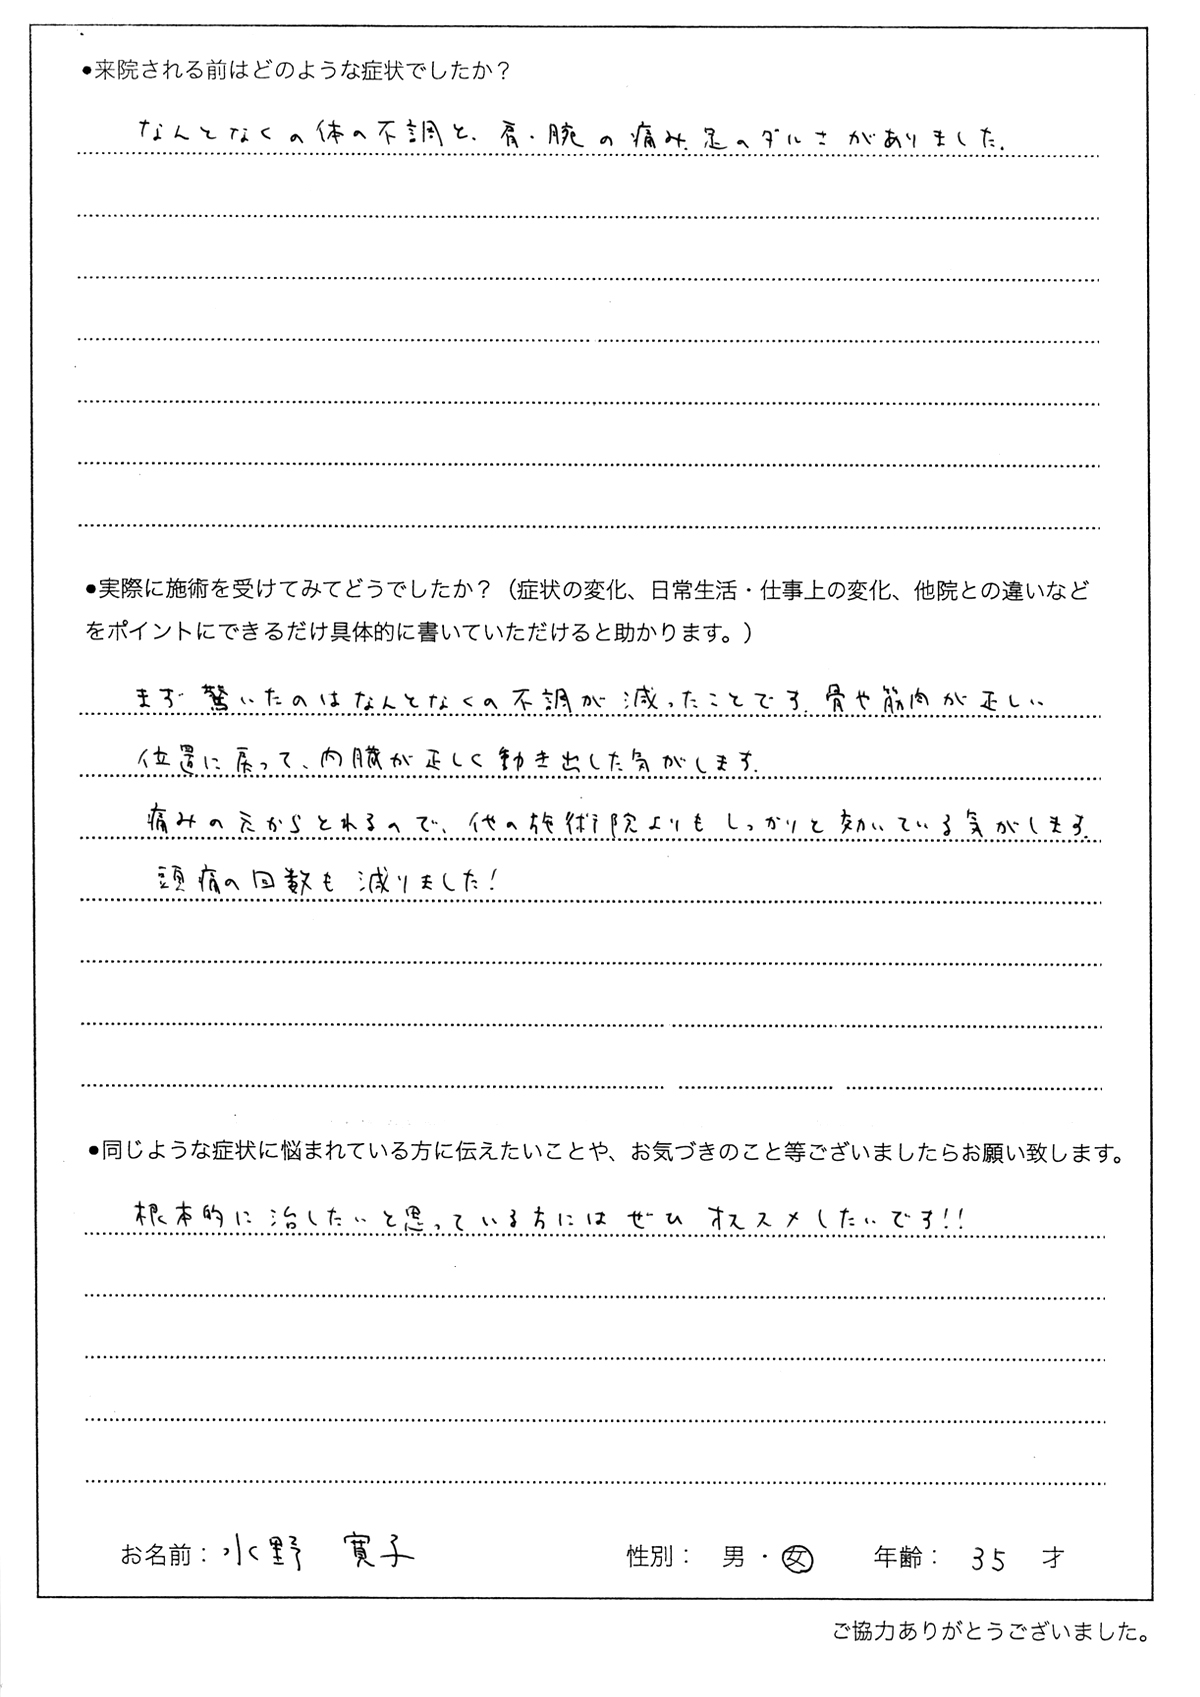 ●来院される前はどのような症状でしたか？
なんとなくの体の不調と、肩・腕の痛み、足のダルさがありました。
●実際に施術を受けてみてどうでしたか？（症状の変化、日常生活・仕事上の変化、他院との違いなど
をポイントにできるだけ具体的に書いていただけると助かります。）
まず驚いたのはなんとなくの不調が減ったことです。骨や筋肉が正しい
位置に戻って、内臓が正しく動き出した気がします。
痛みの元からとれるので、他の施術院よりもしっかりと効いている気がします。
頭痛の回数も減りました！
●同じような症状に悩まれている方に伝えたいことや、お気づきのこと等ございましたらお願い致します。
根本的に治したいと思っている方にはぜひオススメしたいです!!
お名前：水野 寛子 性別： 男・女 年齢： 35 才
ご協力ありがとうございました。